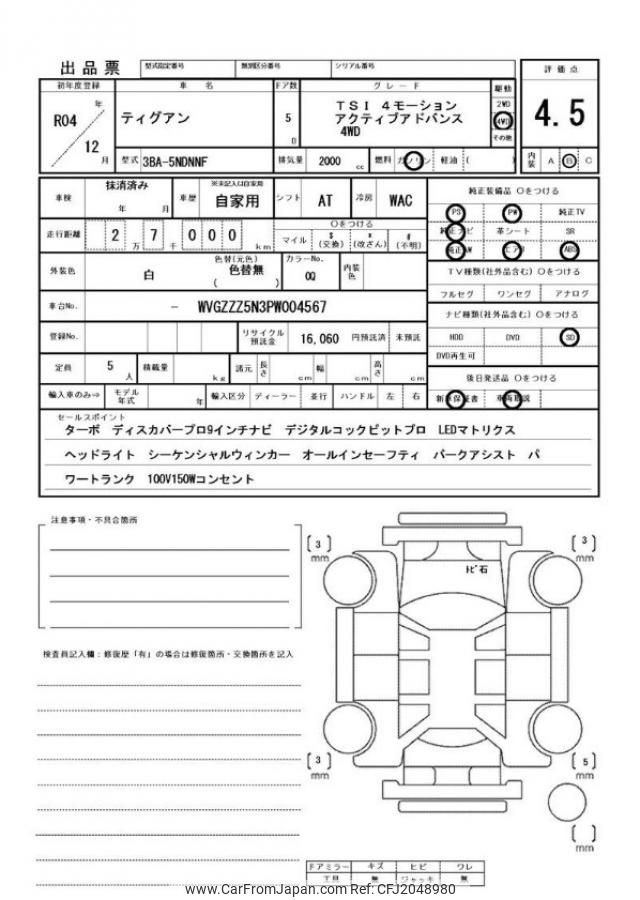 出品票 型式指定番号 類別区分番号 シリアル番号
評価点
4.5
内装 A B C
初年度登録 車名 ドア数 グレード 駆動
R04 年 12 月
ティグアン
5 D
TSI 4モーション
アクティブアドバンス
4WD
2WD
4WD
その他
型式 3BA-5NDNNF 排気量 2000 cc 燃料 ガソリン 軽油 ( )
車検 抹消済み 年 月 車歴 ※未記入は自家用 自家用 シフト AT 冷房 WAC
純正装備品 Oをつける
PS PW 純正TV
純正ナビ 革シート SR
純正AW エアB ABS
走行距離 2 万 7 千 0 0 0 km
Oをつける
マイル $ (交換) * (改ざん) # (不明)
外装色 白 色替(元色) 色替無 ( ) カラーNo. 0Q 内装色
TV種類(社外品含む) Oをつける
フルセグ ワンセグ アナログ
車台No. - WVGZZZ5N3PW004567
ナビ種類(社外品含む) Oをつける
HDD DVD SD
DVD再生可
登録No. リサイクル預託金 16,060 円預託済 未預託
定員 5 人 積載量 kg 諸元 長さ cm 幅 cm 高さ cm
後日発送品 Oをつける
新車保証書 車両取説
輸入車のみ⇒ モデル年式 年 輸入区分 ディーラー 並行 ハンドル 左 右
セールスポイント
ターボ ディスカバープロ9インチナビ デジタルコックピットプロ LEDマトリクス
ヘッドライト シーケンシャルウィンカー オールインセーフティ パークアシスト パ
ワートランク 100V150Wコンセント
注意事項・不具合箇所
[3] mm
[3] mm
ﾄﾋﾞ石
検査員記入欄：修復歴「有」の場合は修復箇所・交換箇所を記入
[3] mm
[5] mm
[ ] mm
ドアミラー キズ ヒビ ワレ
工具 無 ジャッキ 無
www.CarFromJapan.com Ref: CFJ2048980